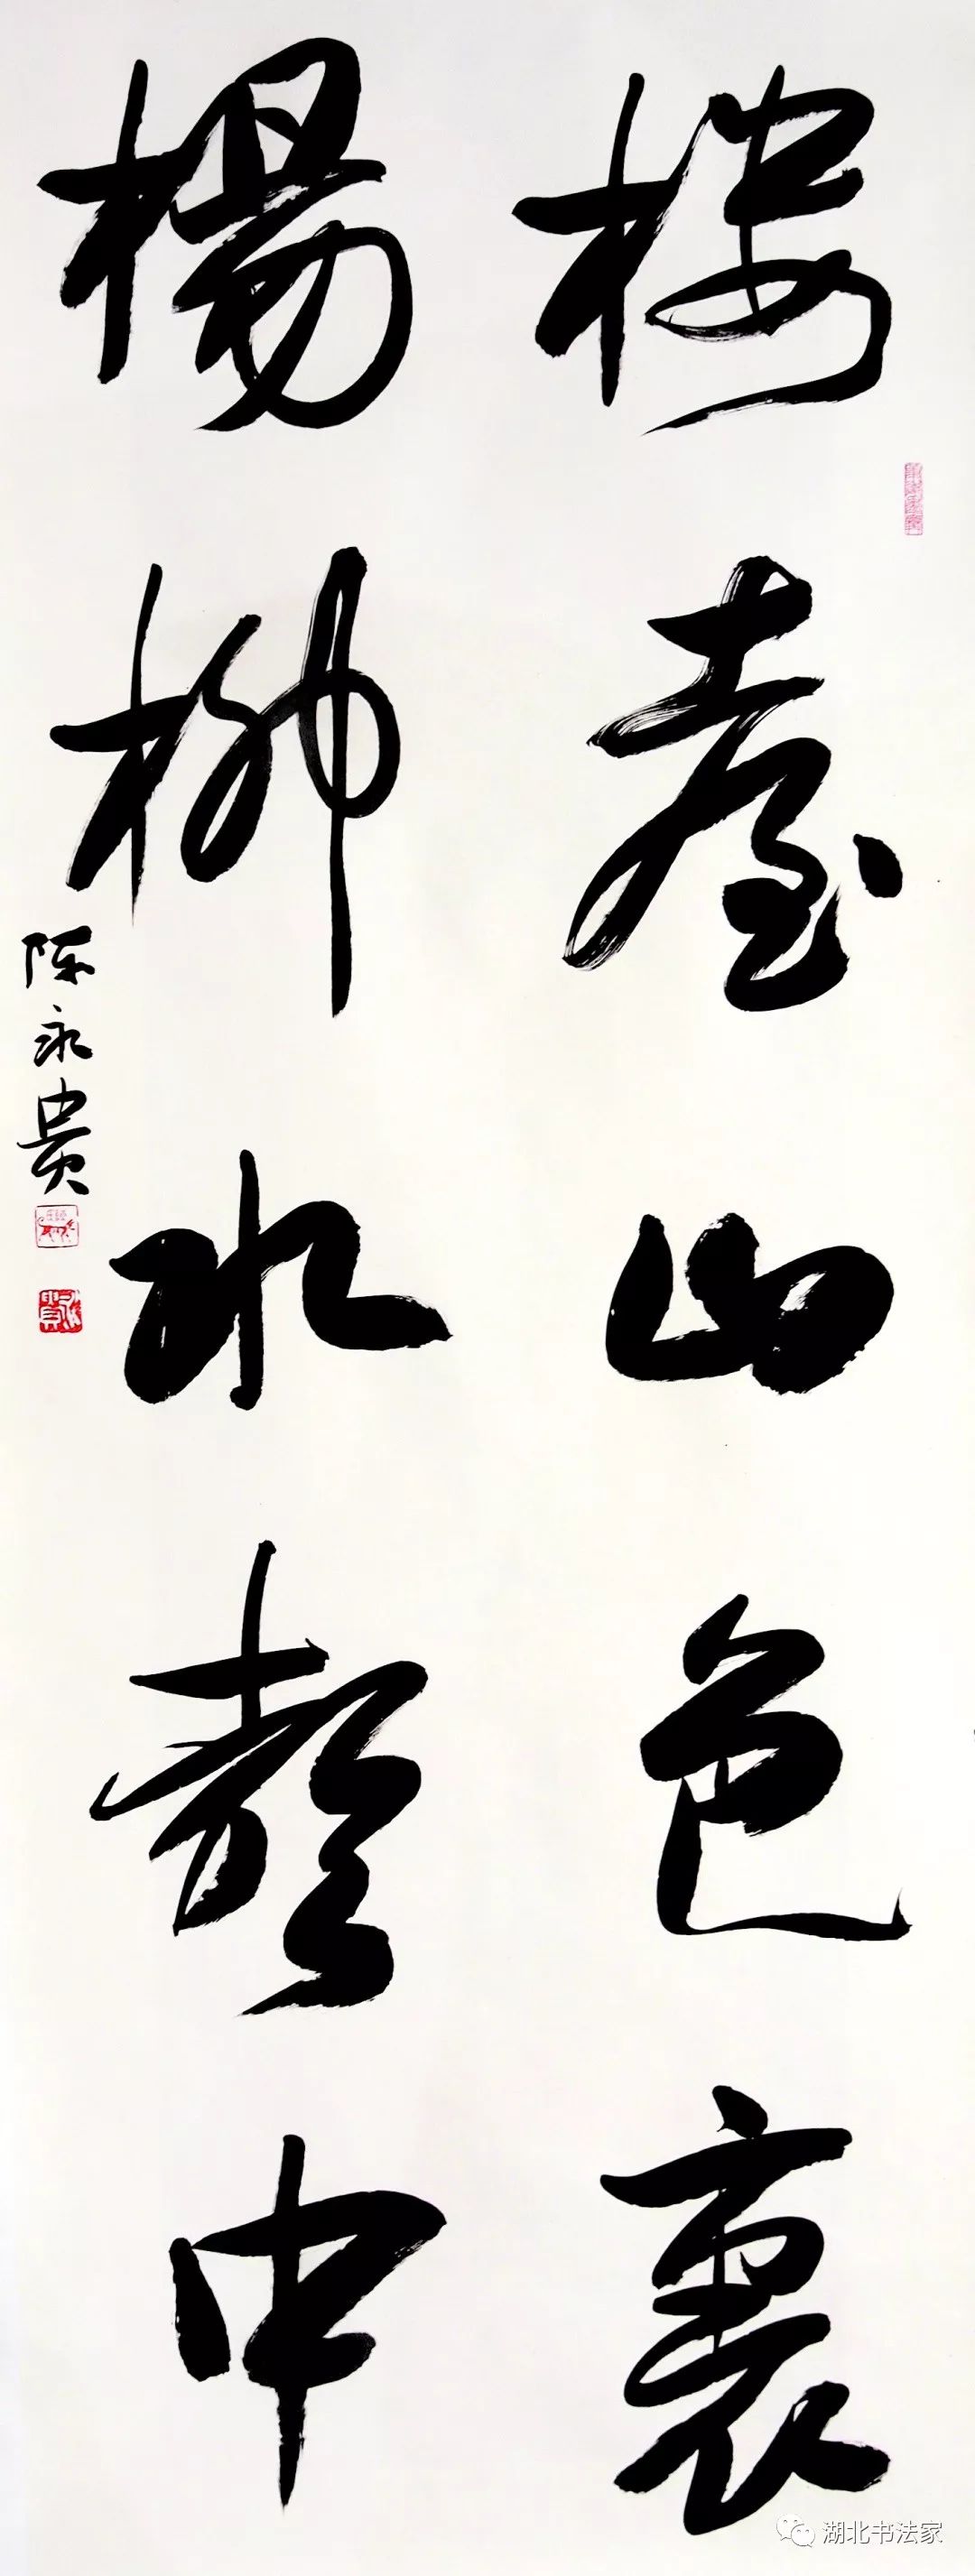 樓臺山色裏
楊柳水聲中
陈永贵
湖北书法家